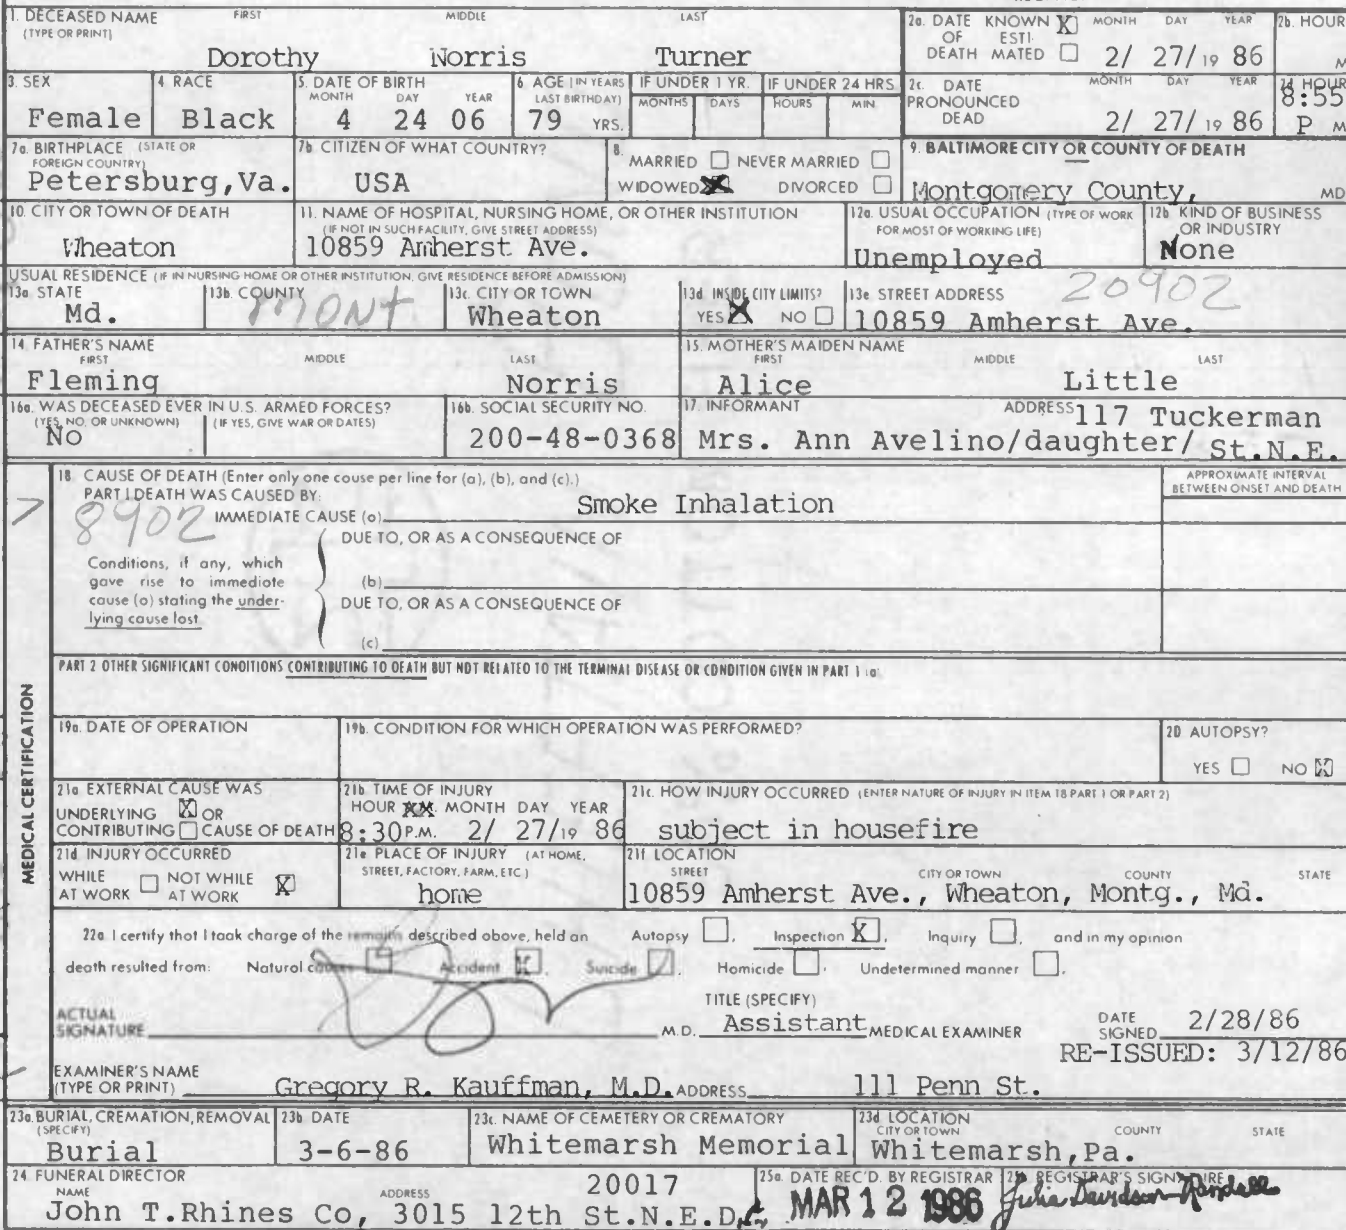 1. DECEASED NAME FIRST MIDDLE LAST
(TYPE OR PRINT)
Dorothy Norris Turner
2a. DATE KNOWN X MONTH DAY YEAR
OF ESTI-
DEATH MATED 2/ 27/19 86
2b. HOUR
M
3. SEX
Female
4. RACE
Black
5. DATE OF BIRTH
MONTH DAY YEAR
4 24 06
6. AGE (IN YEARS
LAST BIRTHDAY)
79 YRS.
IF UNDER 1 YR.
MONTHS DAYS
IF UNDER 24 HRS.
HOURS MIN.
2c. DATE MONTH DAY YEAR
PRONOUNCED
DEAD 2/ 27/ 19 86
2d HOUR
8:55
P M
7a. BIRTHPLACE (STATE OR
FOREIGN COUNTRY)
Petersburg,Va.
7b. CITIZEN OF WHAT COUNTRY?
USA
8.
MARRIED NEVER MARRIED
WIDOWED X DIVORCED
9. BALTIMORE CITY OR COUNTY OF DEATH
Montgomery County, MD
10. CITY OR TOWN OF DEATH
Wheaton
11. NAME OF HOSPITAL, NURSING HOME, OR OTHER INSTITUTION
(IF NOT IN SUCH FACILITY, GIVE STREET ADDRESS)
10859 Amherst Ave.
12a. USUAL OCCUPATION (TYPE OF WORK
FOR MOST OF WORKING LIFE)
Unemployed
12b. KIND OF BUSINESS
OR INDUSTRY
None
USUAL RESIDENCE (IF IN NURSING HOME OR OTHER INSTITUTION, GIVE RESIDENCE BEFORE ADMISSION)
13a. STATE
Md.
13b. COUNTY
MONT
13c. CITY OR TOWN
Wheaton
13d. INSIDE CITY LIMITS?
YES X NO
13e. STREET ADDRESS 20902
10859 Amherst Ave.
14. FATHER'S NAME
FIRST MIDDLE LAST
Fleming Norris
15. MOTHER'S MAIDEN NAME
FIRST MIDDLE LAST
Alice Little
16a. WAS DECEASED EVER IN U.S. ARMED FORCES?
(YES, NO, OR UNKNOWN) (IF YES, GIVE WAR OR DATES)
No
16b. SOCIAL SECURITY NO.
200-48-0368
17. INFORMANT ADDRESS 117 Tuckerman
Mrs. Ann Avelino/daughter/ St.N.E.
MEDICAL CERTIFICATION
18. CAUSE OF DEATH (Enter only one cause per line for (a), (b), and (c).)
PART I DEATH WAS CAUSED BY:
8902 IMMEDIATE CAUSE (a) Smoke Inhalation
APPROXIMATE INTERVAL
BETWEEN ONSET AND DEATH
DUE TO, OR AS A CONSEQUENCE OF
Conditions, if any, which
gave rise to immediate
cause (a) stating the under-
lying cause last
(b)
DUE TO, OR AS A CONSEQUENCE OF
(c)
PART 2 OTHER SIGNIFICANT CONDITIONS CONTRIBUTING TO DEATH BUT NOT RELATED TO THE TERMINAL DISEASE OR CONDITION GIVEN IN PART 1 (a)
19a. DATE OF OPERATION
19b. CONDITION FOR WHICH OPERATION WAS PERFORMED?
20 AUTOPSY?
YES NO X
21a EXTERNAL CAUSE WAS
UNDERLYING X OR
CONTRIBUTING CAUSE OF DEATH
21b TIME OF INJURY
HOUR XX. MONTH DAY YEAR
8:30 P.M. 2/ 27/19 86
21c. HOW INJURY OCCURRED (ENTER NATURE OF INJURY IN ITEM 18 PART 1 OR PART 2)
subject in housefire
21d INJURY OCCURRED
WHILE NOT WHILE
AT WORK AT WORK X
21e PLACE OF INJURY (AT HOME,
STREET, FACTORY, FARM, ETC.)
home
21f LOCATION
STREET CITY OR TOWN COUNTY STATE
10859 Amherst Ave., Wheaton, Montg., Md.
22a I certify that I took charge of the remains described above, held an Autopsy , Inspection X, Inquiry , and in my opinion
death resulted from: Natural causes Accident X, Suicide , Homicide , Undetermined manner .
ACTUAL
SIGNATURE M.D.
TITLE (SPECIFY)
Assistant MEDICAL EXAMINER
DATE
SIGNED 2/28/86
RE-ISSUED: 3/12/86
EXAMINER'S NAME
(TYPE OR PRINT) Gregory R. Kauffman, M.D. ADDRESS 111 Penn St.
23a. BURIAL, CREMATION, REMOVAL
(SPECIFY)
Burial
23b DATE
3-6-86
23c. NAME OF CEMETERY OR CREMATORY
Whitemarsh Memorial
23d LOCATION
CITY OR TOWN COUNTY STATE
Whitemarsh,Pa.
24. FUNERAL DIRECTOR
NAME ADDRESS 20017
John T.Rhines Co, 3015 12th St.N.E.D.C.
25a. DATE REC'D. BY REGISTRAR
MAR 12 1986
25b. REGISTRAR'S SIGNATURE
Julia Davidson-Randall